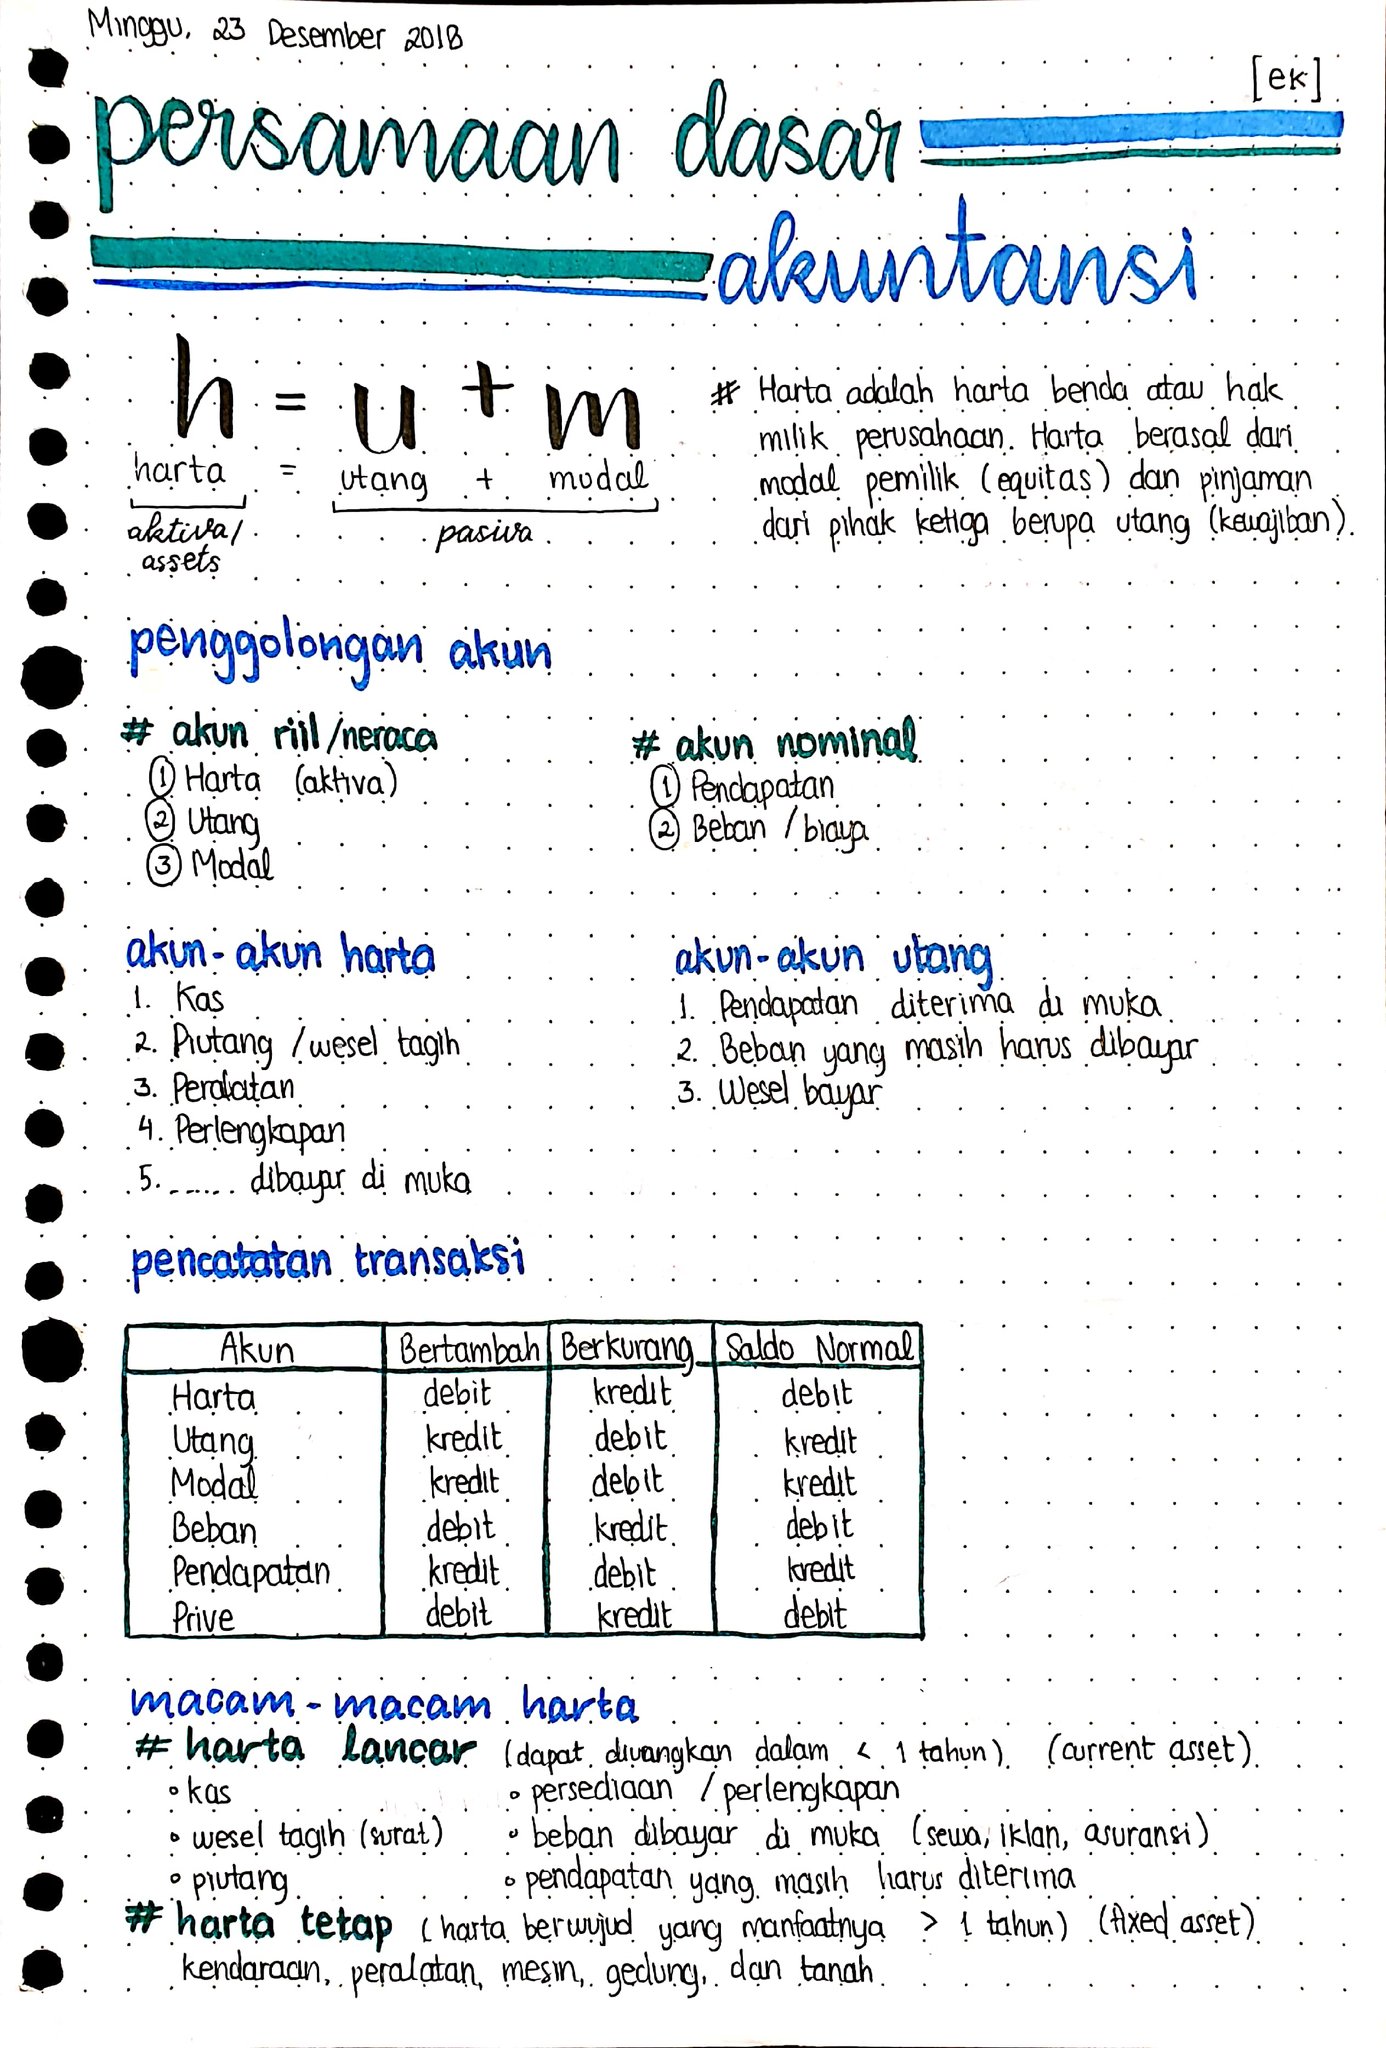 Minggu, 23 Desember 2018
[ek]
persamaan dasar
akuntansi
h = u + m
harta = utang + modal
aktiva/ pasiva
assets
# Harta adalah harta benda atau hak
milik perusahaan. Harta berasal dari
modal pemilik (equitas) dan pinjaman
dari pihak ketiga berupa utang (kewajiban).
penggolongan akun
# akun riil/neraca
① Harta (aktiva)
② Utang
③ Modal
# akun nominal
① Pendapatan
② Beban / biaya
akun-akun harta
1. Kas
2. Piutang / wesel tagih
3. Peralatan
4. Perlengkapan
5. ...... dibayar di muka
akun-akun utang
1. Pendapatan diterima di muka
2. Beban yang masih harus dibayar
3. Wesel bayar
pencatatan transaksi
Akun Bertambah Berkurang Saldo Normal
Harta debit kredit debit
Utang kredit debit kredit
Modal kredit debit kredit
Beban debit kredit debit
Pendapatan kredit debit kredit
Prive debit kredit debit
macam-macam harta
# harta lancar (dapat diuangkan dalam < 1 tahun) (current asset)
• kas • persediaan / perlengkapan
• wesel tagih (surat) • beban dibayar di muka (sewa, iklan, asuransi)
• piutang • pendapatan yang masih harus diterima
# harta tetap (harta berwujud yang manfaatnya > 1 tahun) (fixed asset)
kendaraan, peralatan, mesin, gedung, dan tanah